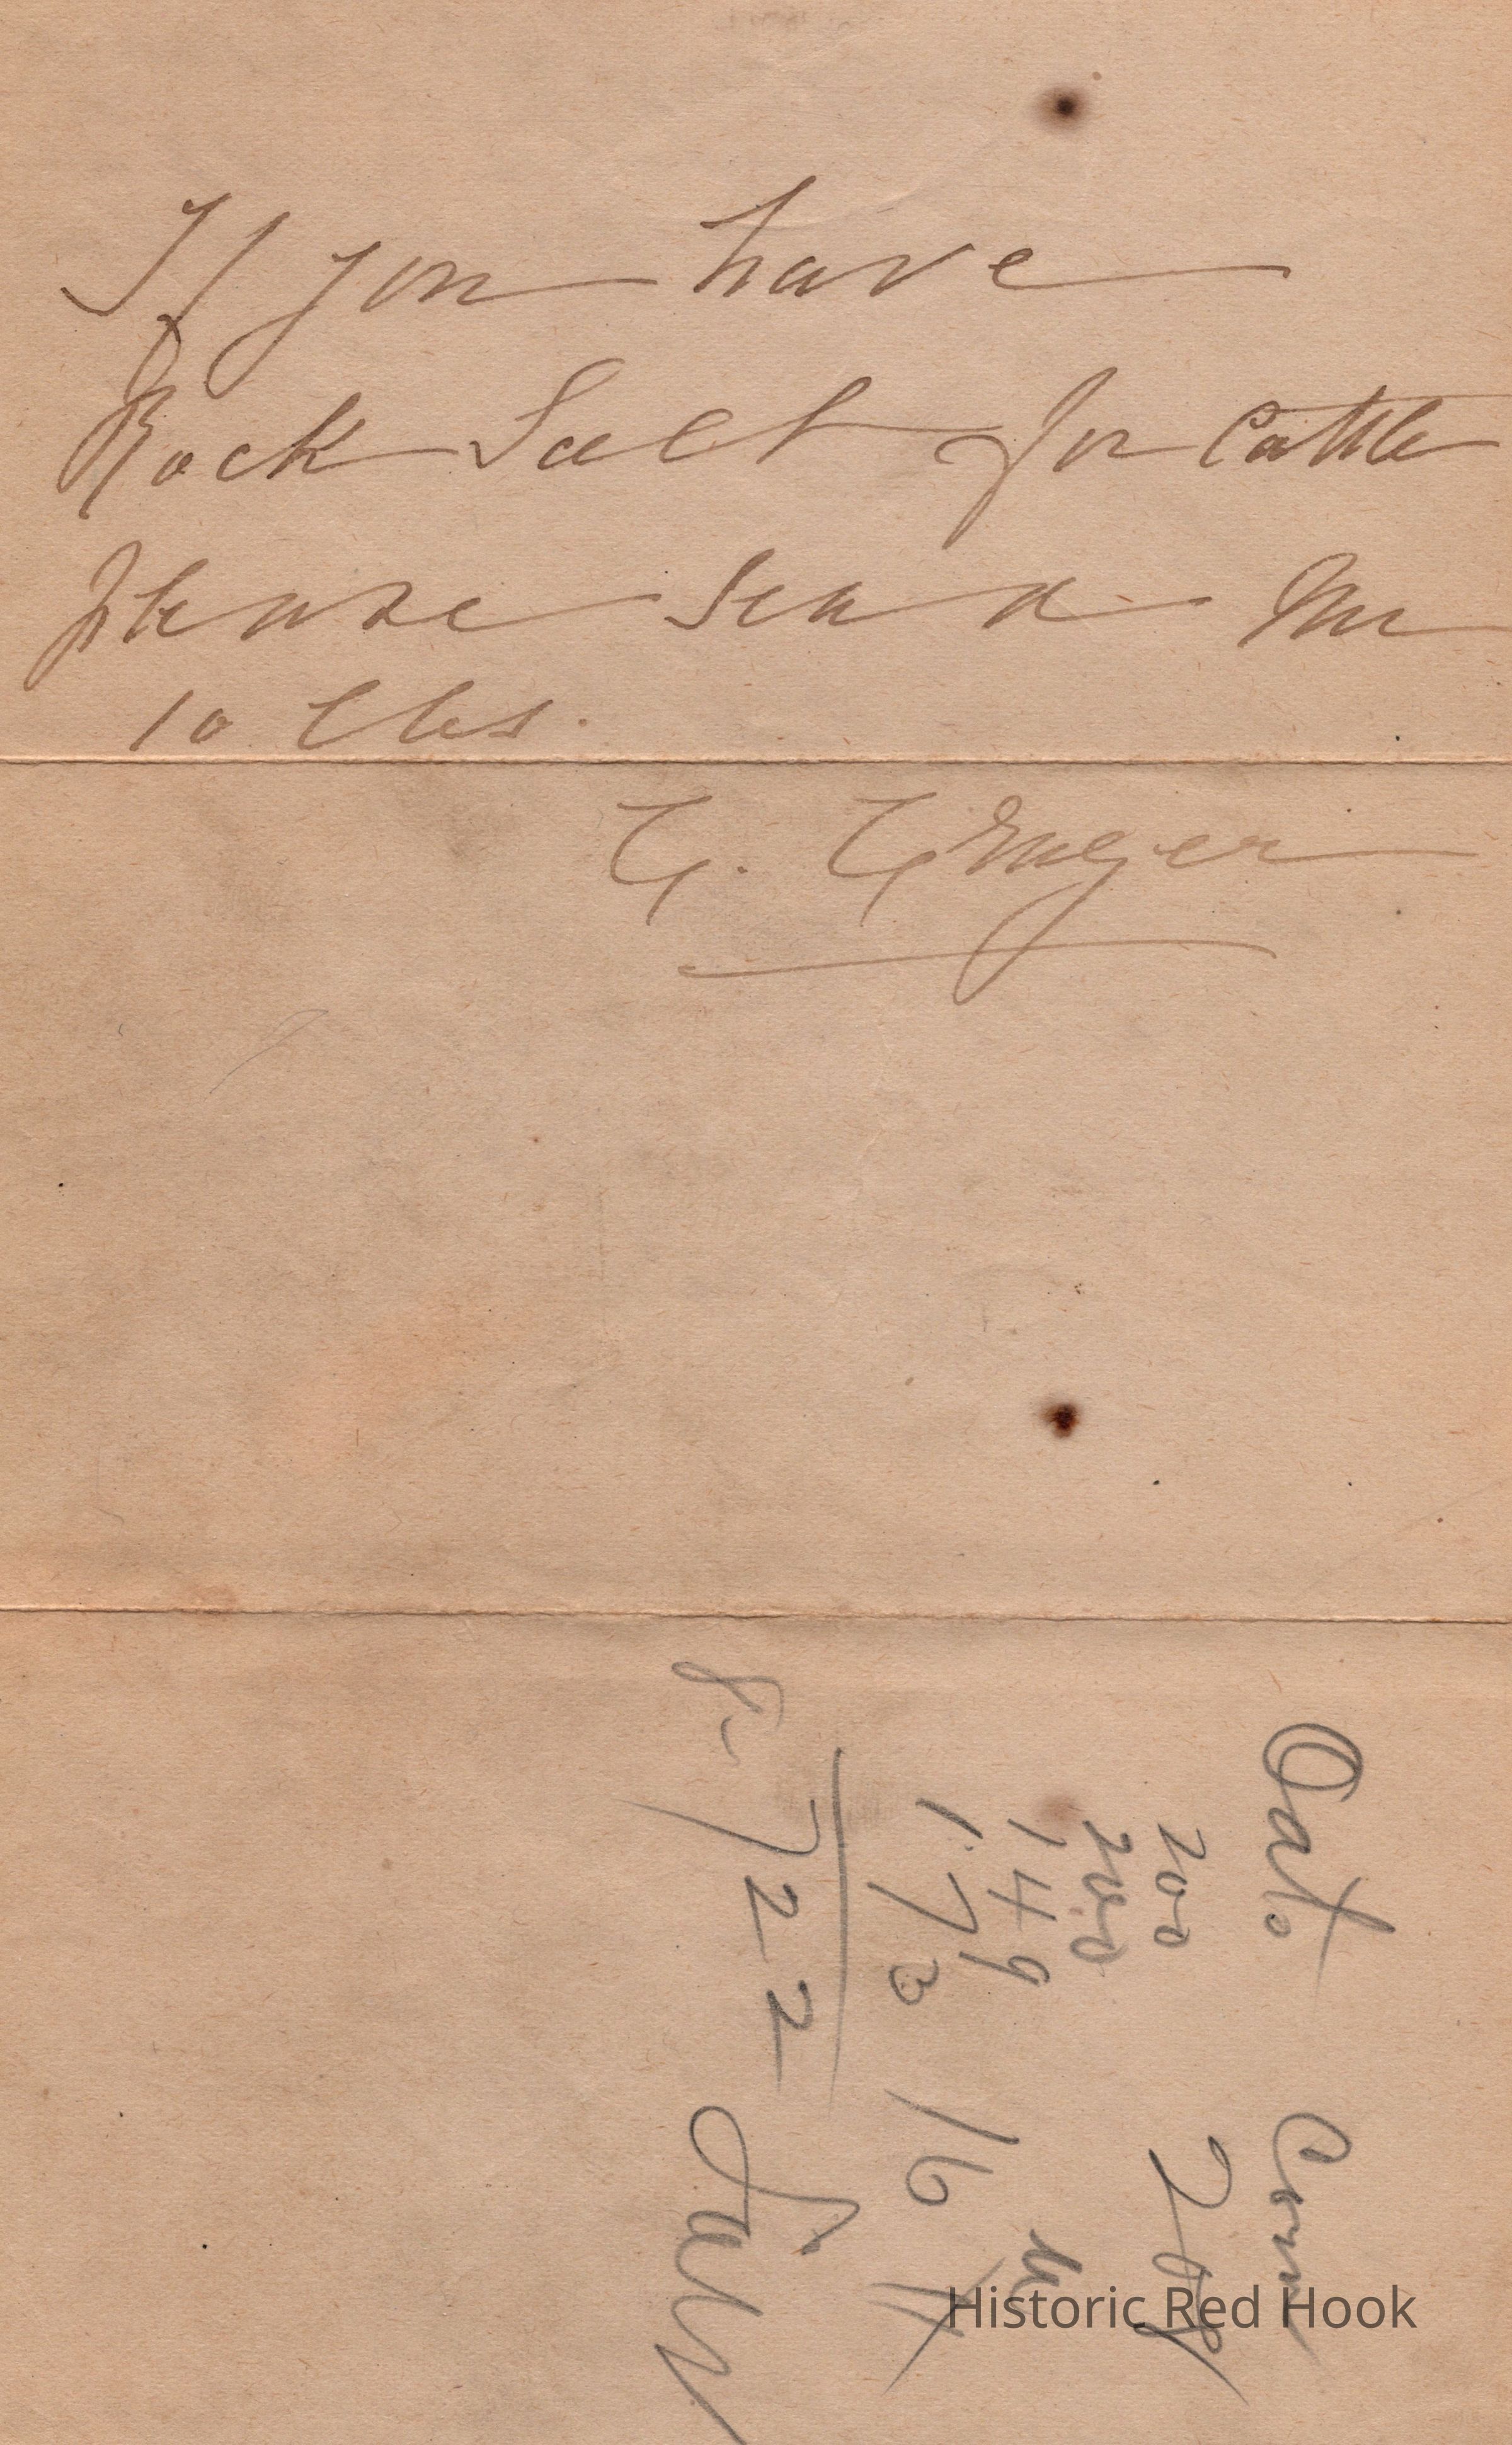 If you have
Rock Salt for Cattle
please send me
10 lbs.
Oats Corn
200 208
200
149
1.73 16
722 Salt
Historic Red Hook